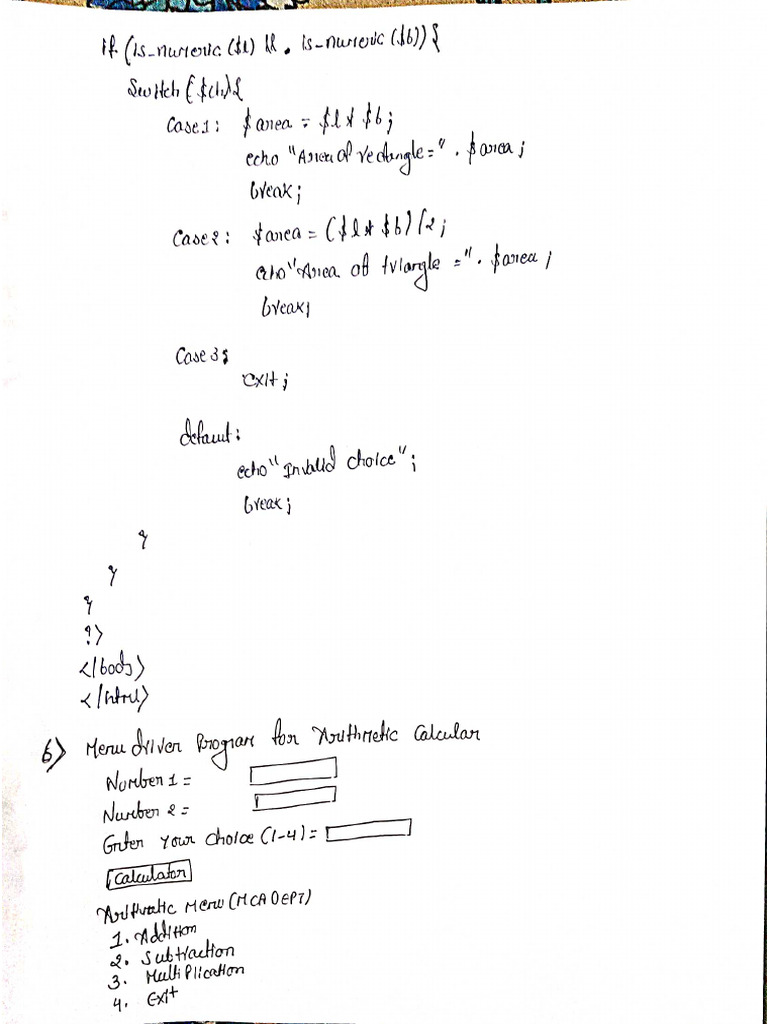 if (is_numeric($l) && . is_numeric($b)) {
Switch ($ch) {
Case 1: $area = $l * $b;
echo "Area of rectangle=" . $area;
break;
Case 2: $area = ($l * $b) / 2;
echo "Area of triangle =" . $area;
break;
Case 3;
exit;
default:
echo "Invalid choice";
break;
}
}
}
?>
</body>
</html>
6) Menu driven Program for Arithmetic Calcular
Number 1 =
Number 2 =
Enter Your choice (1-4) =
Calculator
Arithmatic Menu (MCA DEPT)
1. Addition
2. Subtraction
3. Multiplication
4. Exit